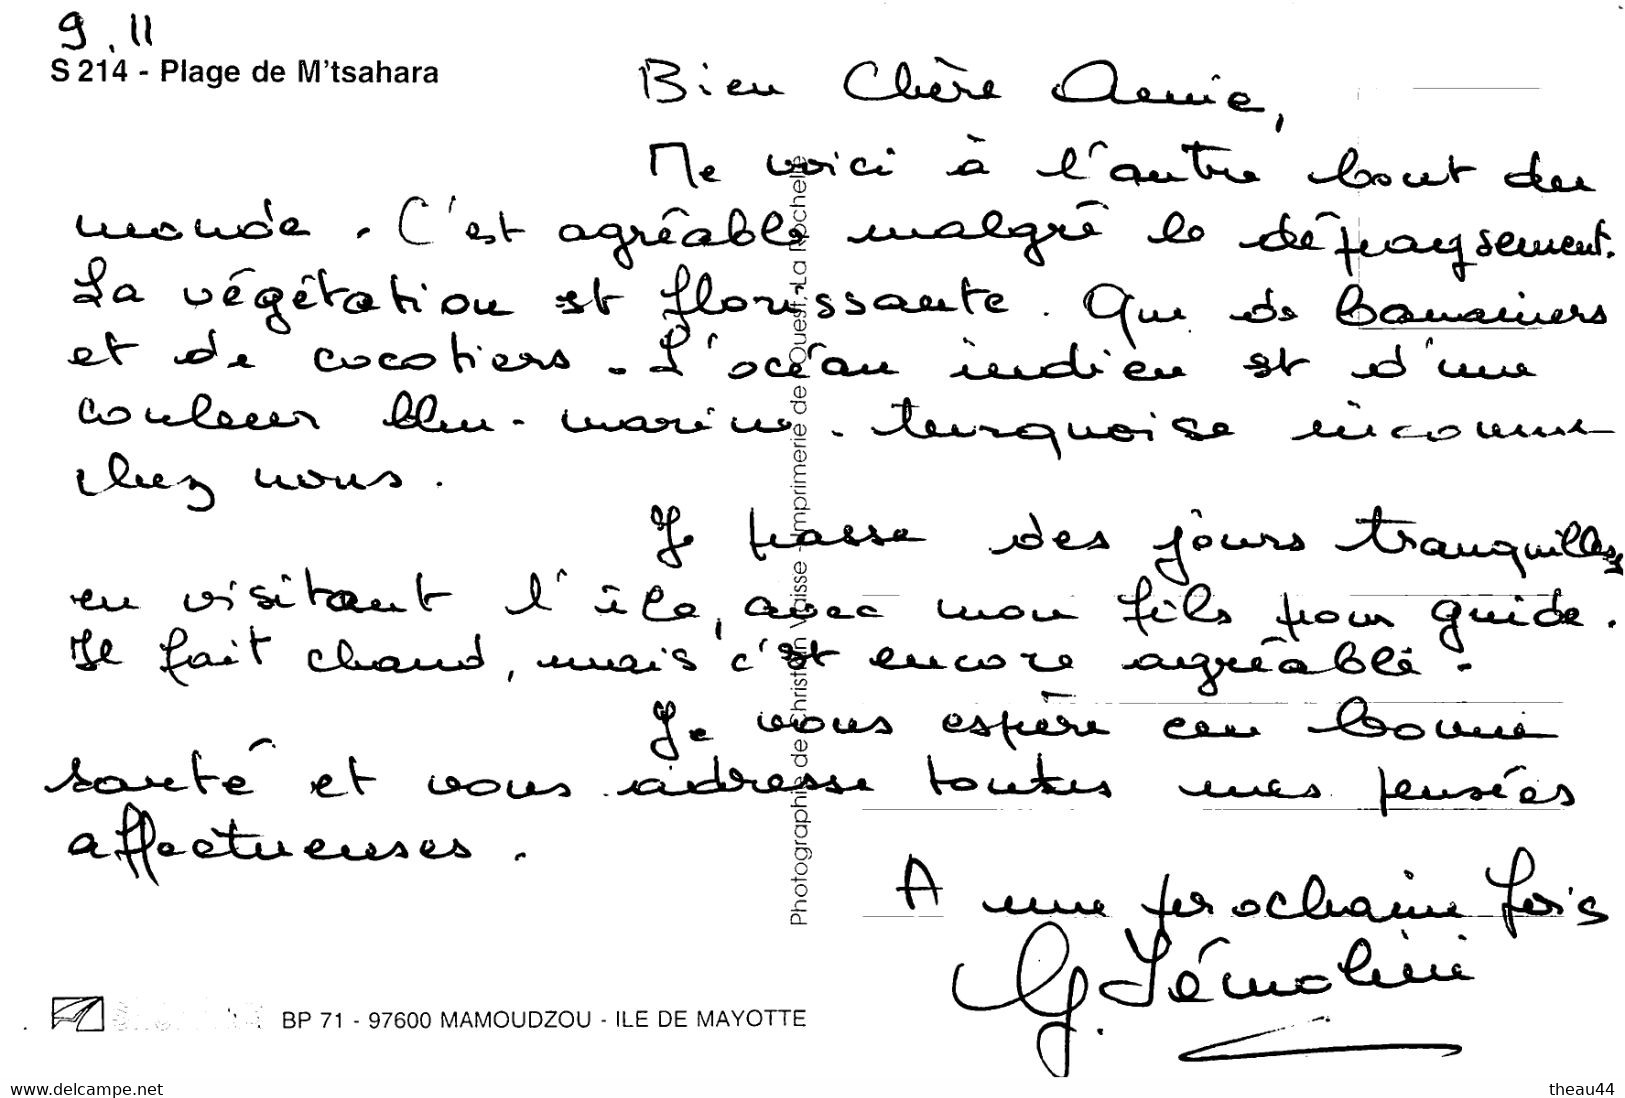 9.11
S 214 - Plage de M'tsahara
Bien Chère Amie,
Me voici à l'autre bout du
monde. C'est agréable malgré le dépaysement.
La végétation est florissante. Que de bananiers
et de cocotiers. L'océan indien est d'une
couleur bleu-marine. turquoise inconnue
chez nous.
Je passe des jours tranquilles,
en visitant l'île, avec mon fils pour guide.
Il fait chaud, mais c'est encore agréable.
Je vous espère en bonne
santé et vous adresse toutes mes pensées
affectueuses.
A une prochaine fois
G.
Photographie de Christian Vaisse - Imprimerie de l'Ouest, La Rochelle
BP 71 - 97600 MAMOUDZOU - ILE DE MAYOTTE
www.delcampe.net
theau44